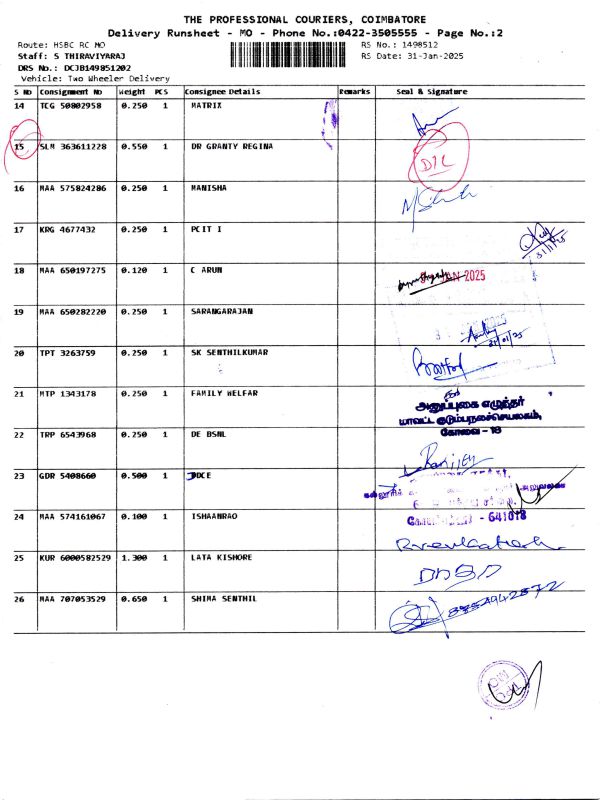 THE PROFESSIONAL COURIERS, COIMBATORE
Delivery Runsheet - MO - Phone No.:0422-3505555 - Page No.:2
Route: HSBC RC MO RS No.: 1498512
Staff: S THIRAVIYARAJ RS Date: 31-Jan-2025
DRS No.: DCJB149851202
Vehicle: Two Wheeler Delivery
S NO Consignment NO Weight PCS Consignee Details Remarks Seal & Signature
14 TCG 50802958 0.250 1 MATRIX
15 SLM 363611228 0.550 1 DR GRANTY REGINA D/L
16 MAA 575824286 0.250 1 MANISHA
17 KRG 4677432 0.250 1 PCIT I
31/1/25
18 MAA 650197275 0.120 1 C ARUN JAN 2025
19 MAA 650282220 0.250 1 SARANGARAJAN
31/01/25
20 TPT 3263759 0.250 1 SK SENTHILKUMAR
21 MTP 1343178 0.250 1 FAMILY WELFAR
அனுப்புகை எழுத்தர்
மாவட்ட குடும்பநலச்செயலகம்,
கோவை - 18
22 TRP 6543968 0.250 1 DE BSNL
23 GDR 5408660 0.500 1 JDCE
24 MAA 574161067 0.100 1 ISHAANRAO
- 641018
25 KUR 6000582529 1.300 1 LATA KISHORE
26 MAA 707053529 0.650 1 SHIMA SENTHIL